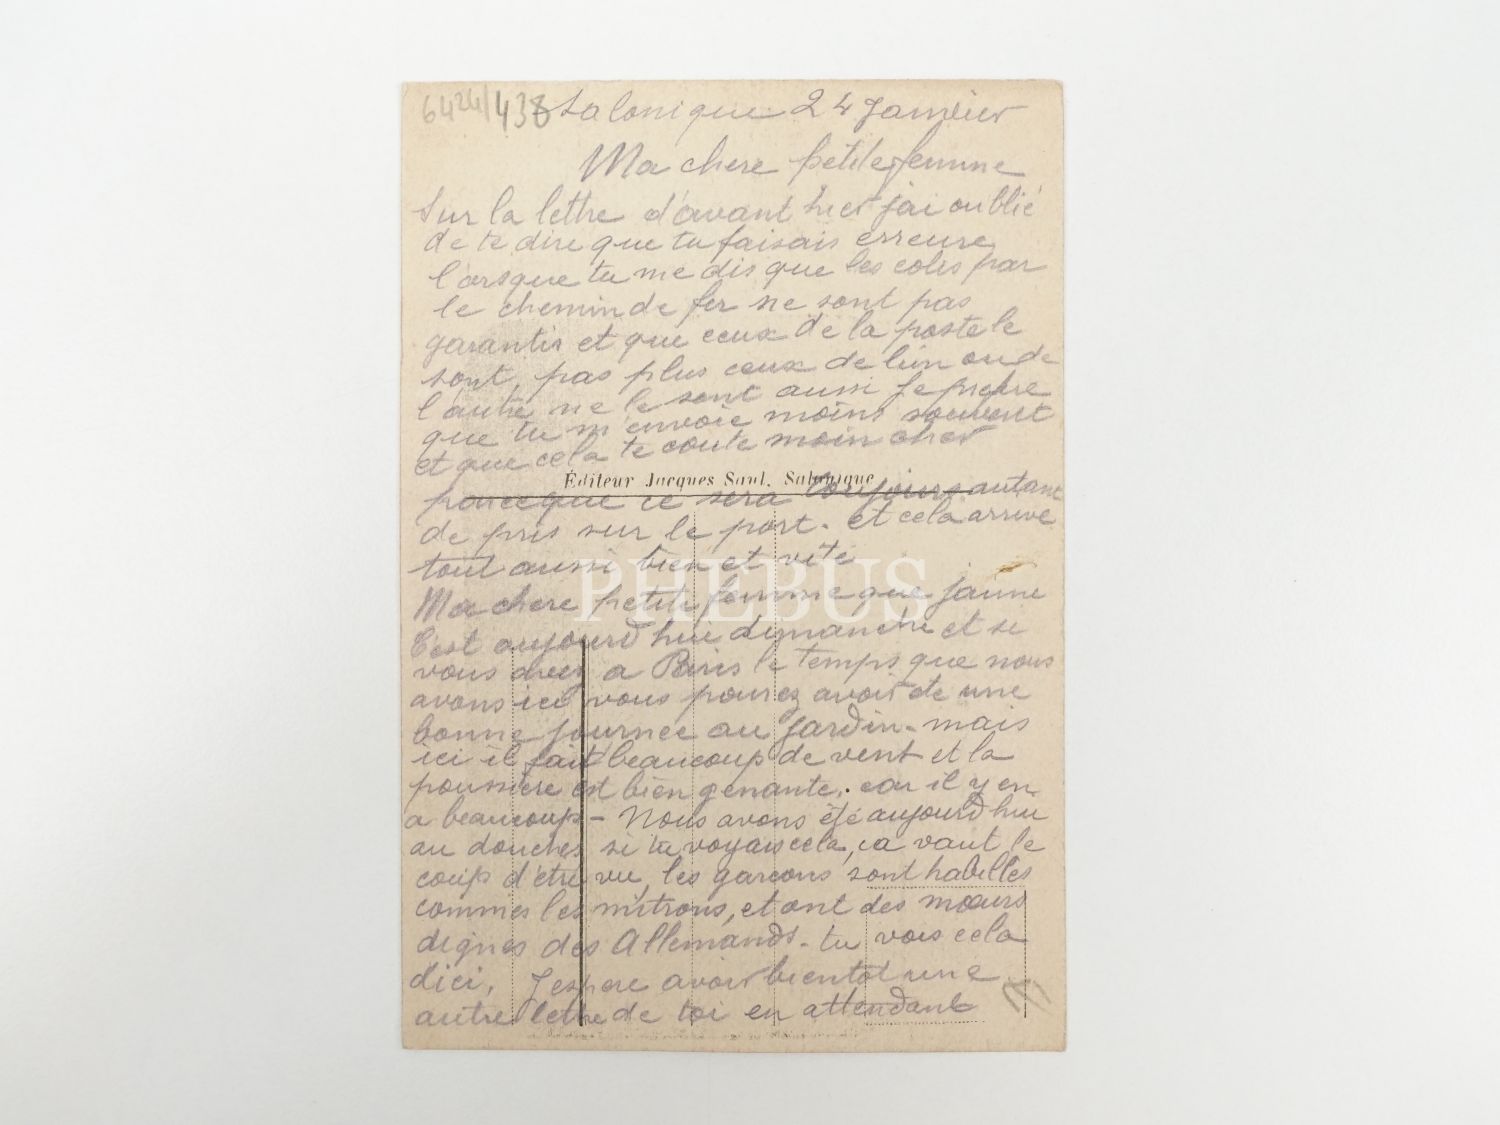 6424/438 Salonique 24 Janvier
Ma chere petite femme
Sur la lettre d'avant hier jai oublié
de te dire que tu faisais erreure
l'orsque tu me dis que les colis par
le chemin de fer ne sont pas
garantis et que ceux de la poste le
sont, pas plus ceux de l'un ou de
l'autre ne le sont aussi Je prefere
que tu m'envoie moins souvent
et que cela te coute moin cher
Éditeur Jacques Saul, Salonique
parceque ce sera toujours autant
de pris sur le port. et cela arrive
tout aussi bien et vite
Ma chere petite femme que jaime
C'est aujourd'hui dimanche et si
vous avez a Paris le temps que nous
avons ici vous pourez avoir de une
bonne journée au Jardin. mais
ici il fait beaucoup de vent et la
poussiere est bien genante. car il y en
a beaucoup - Nous avons été aujourd'hui
au douches si tu voyais cela, ca vaut le
coup d'etre vu, les garcons sont habilles
commes les mitrons, et ont des mœurs
dignes des Allemands. tu vois cela
dici. J'espere avoir bientot une
autre lettre de toi en attendant
PHEBUS